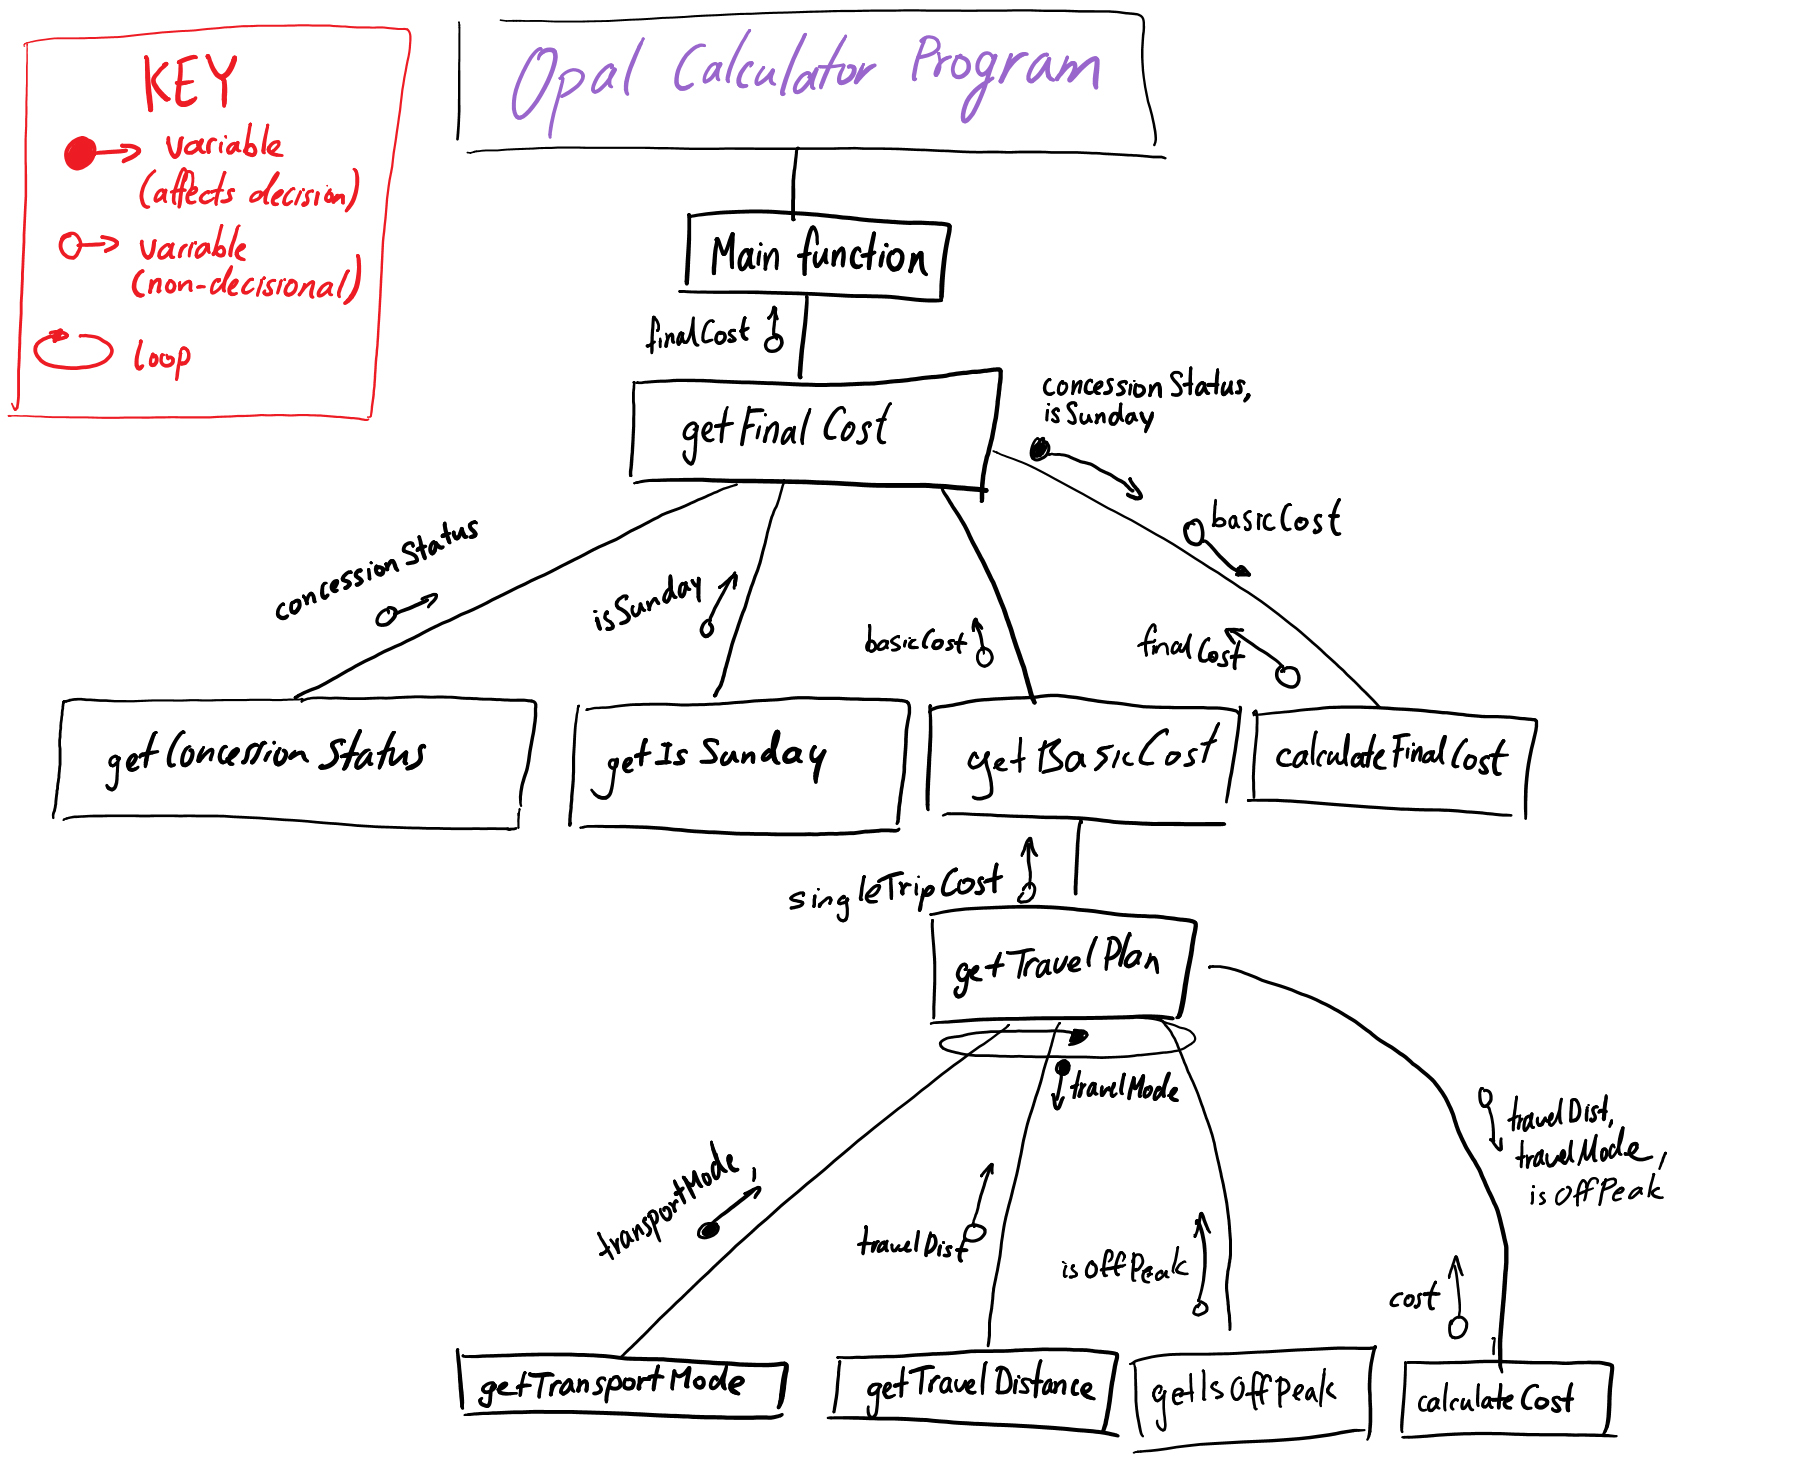 Opal Calculator Program
KEY
variable
(affects decision)
variable
(non-decisional)
loop
Main function
finalCost
getFinalCost
concessionStatus,
isSunday
basicCost
concessionStatus
isSunday
basicCost
finalCost
getConcessionStatus
getIsSunday
getBasicCost
calculateFinalCost
singleTripCost
getTravelPlan
travelMode
travelDist,
travelMode,
isOffPeak
transportMode,
travelDist
isOffPeak
cost
getTransportMode
getTravelDistance
getIsOffPeak
calculateCost